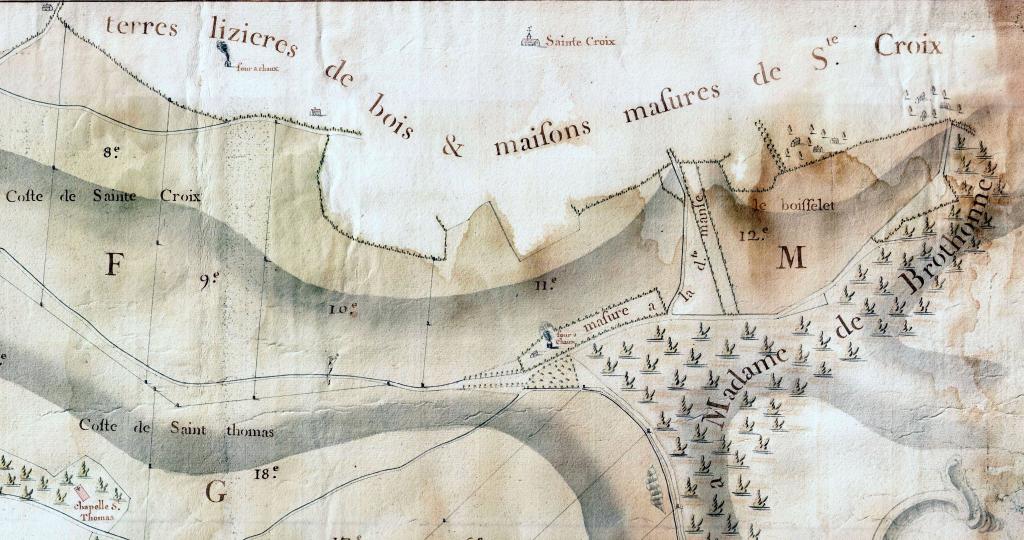 terres lizieres de bois & maisons masures de S.te Croix
Sainte Croix
four a chaux
8.e
Coste de Sainte Croix
F
9.e
10.e
11.e
12.e
le boisselet
M
masure a la d.te manse
four a chaux
a Madame de Brothonne
Coste de Saint thomas
18.e
G
chapelle S.
Thomas